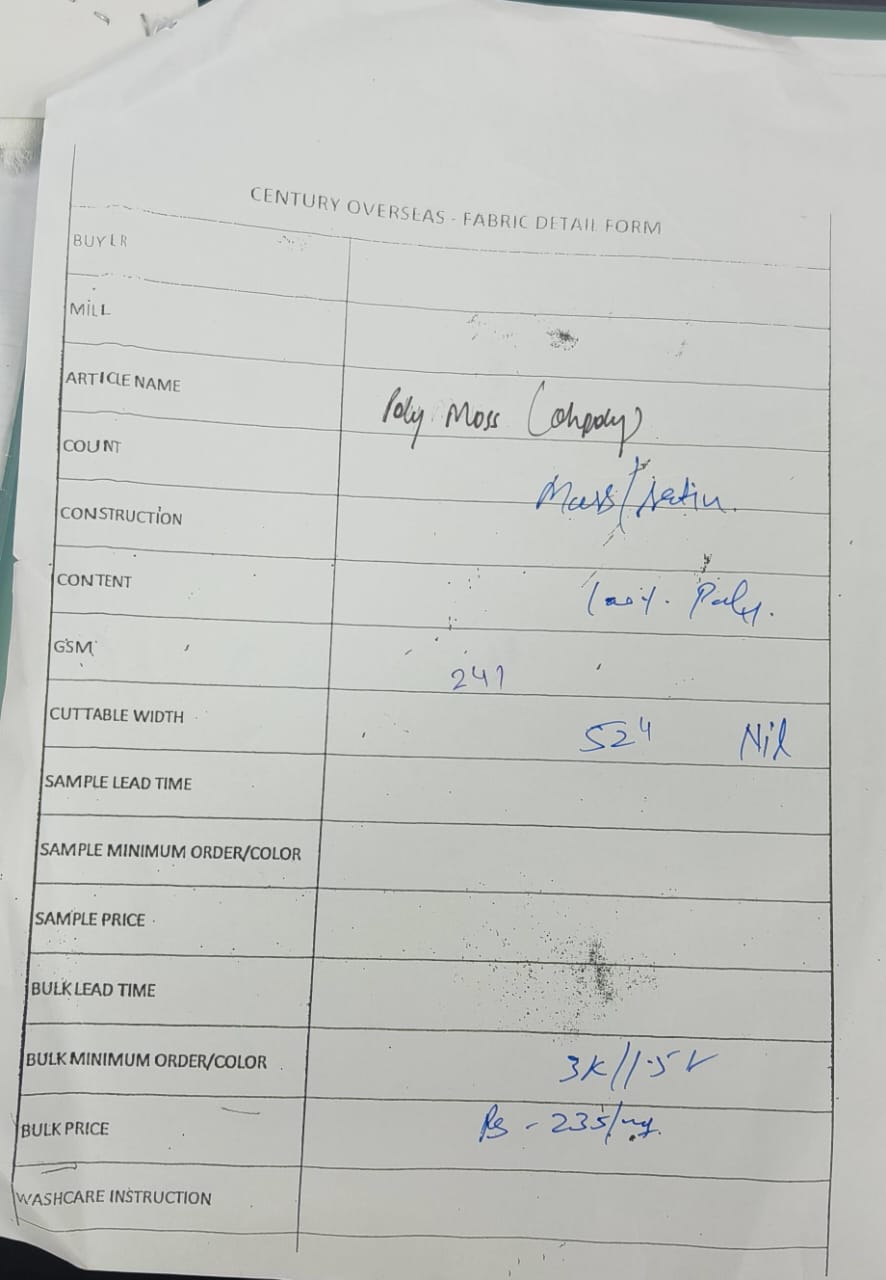 CENTURY OVERSEAS - FABRIC DETAIL FORM
BUYER
MILL
ARTICLE NAME Poly Moss
COUNT
CONSTRUCTION
CONTENT 100%. Poly.
GSM 241
CUTTABLE WIDTH 52" Nil
SAMPLE LEAD TIME
SAMPLE MINIMUM ORDER/COLOR
SAMPLE PRICE
BULK LEAD TIME
BULK MINIMUM ORDER/COLOR 3K//1.5K
BULK PRICE Rs - 235/
WASHCARE INSTRUCTION